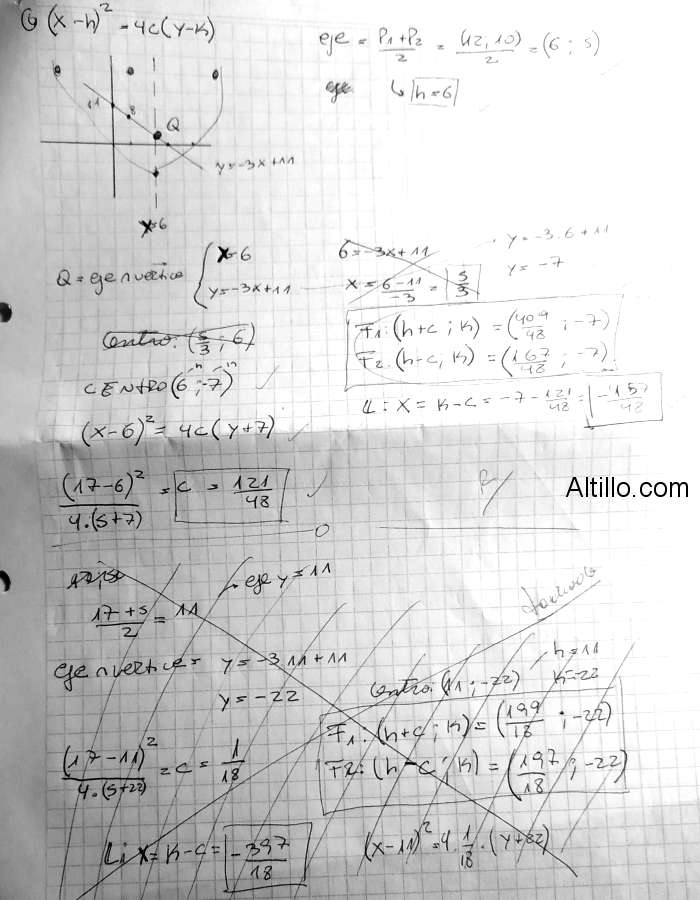 (x-h)² = 4c(y-k)
eje = P1+P2/2 = (12,10)/2 = (6 ; 5)
eje ↳ h=6
11
8
Q
y=-3x+11
x=6
Q = eje ∩ vértice { x=6
y=-3x+11
6=-3x+11
x = 6-11/-3 = 5/3
y=-3.6+11
y=-7
Centro: (5/3 ; 6)
CENTRO (6 ; -7)
h k
F1: (h+c ; k) = (409/48 ; -7)
F2: (h-c ; k) = (167/48 ; -7)
(x-6)² = 4c(y+7)
L: x = k-c = -7 - 121/48 = -457/48
(17-6)²/4.(5+7) = c = 121/48
Altillo.com
eje y=11
17+5/2 = 11
eje ∩ vértice = y=-3 11+11
y=-22
Centro: (11 ; -22)
h=11
k=-22
F1: (h+c ; k) = (199/18 ; -22)
F2: (h-c ; k) = (197/18 ; -22)
(17-11)²/4.(5+22) = c = 1/18
L: x = k-c = -397/18
(x-11)² = 4.1/18.(y+22)